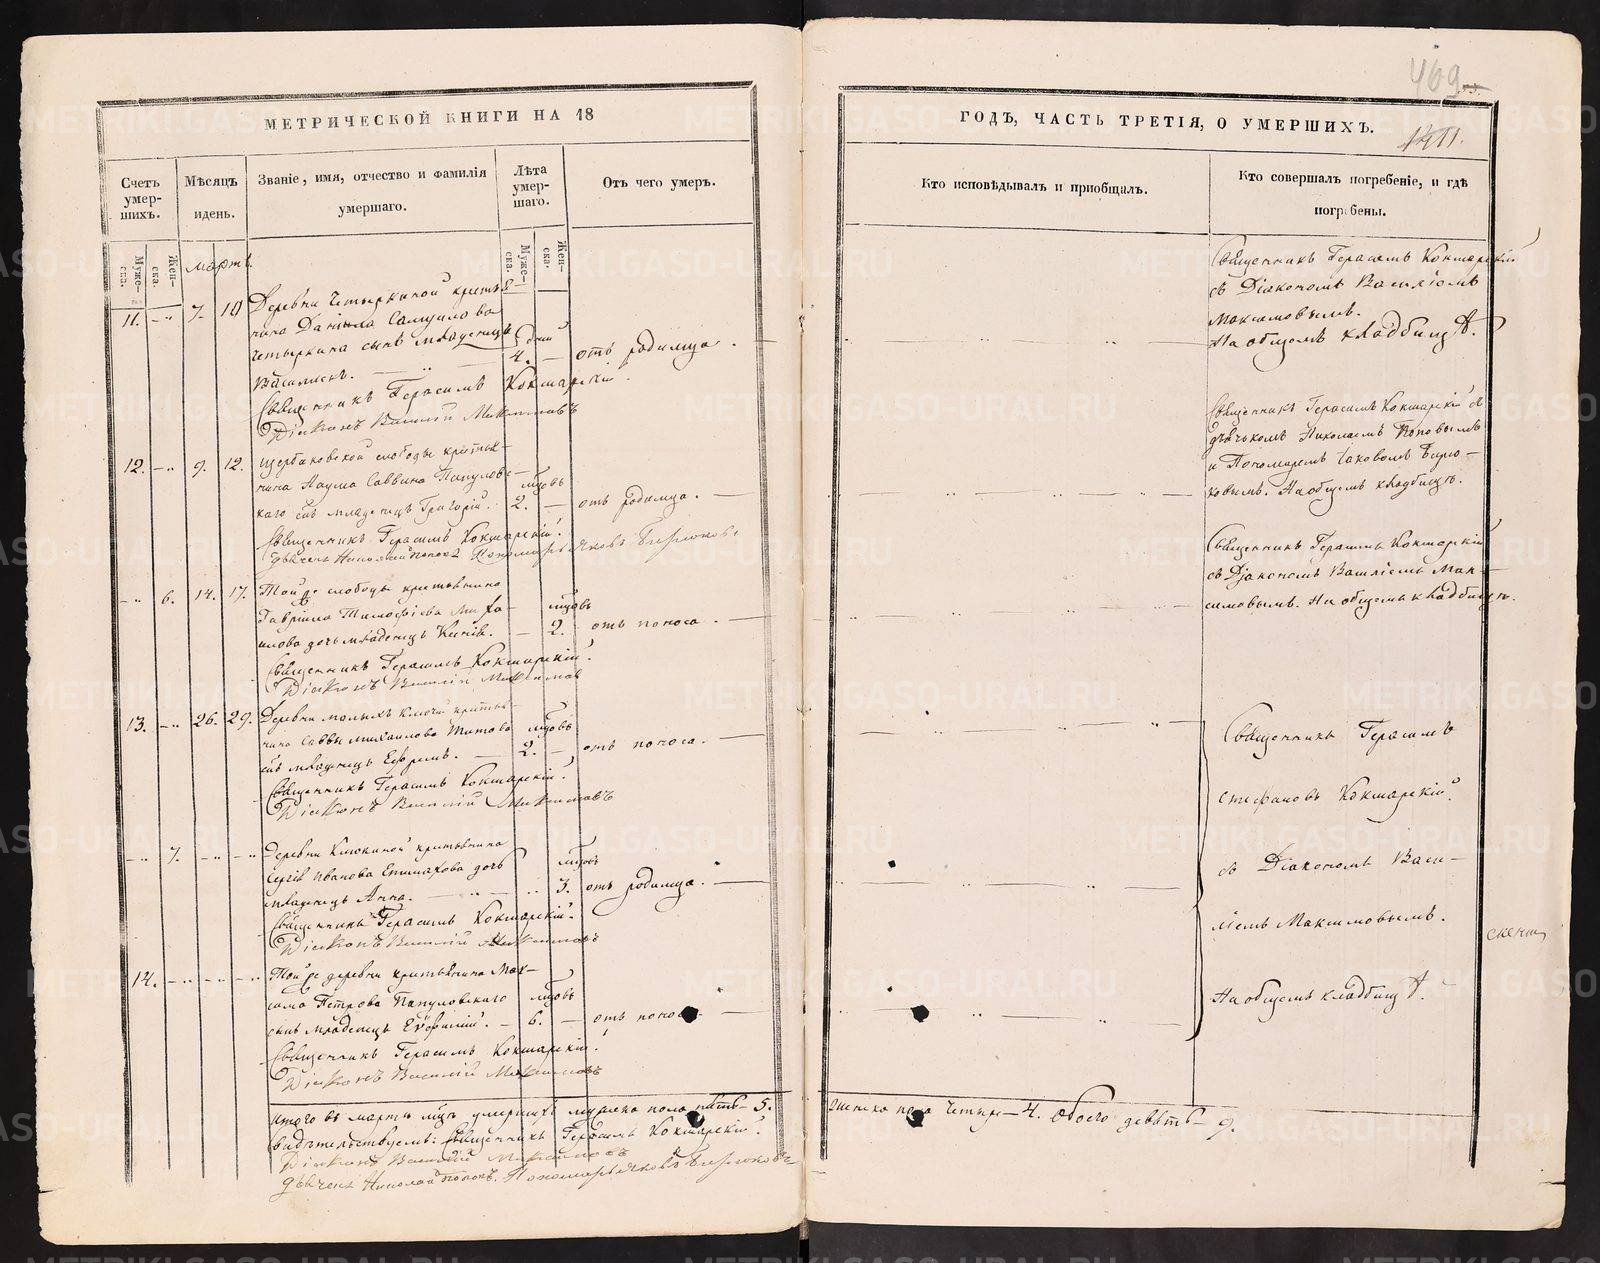 МЕТРИЧЕСКОЙ КНИГИ НА 18
Счетъ умер-шихъ.
Мѣсяцъ идень.
Званіе, имя, отчество и фамилія умершаго.
Лѣта умер-шаго.
Отъ чего умеръ.
Муже-ска.
Жен-ска.
Муже-ска.
Жен-ска.
мартъ.
11. 7. 10
Деревни Четыркиной кресть
янина Данiила Самуилова
Четыркина сынъ младенецъ
Василискъ.
дній
4.
отъ родимца.
Священникъ Герасимъ Кокшарскій.
Діаконъ Василій Максимовъ
12. 9. 12.
Щербаковской слободы кресть
янина Наума Саввина Папулов
каго сынъ младенецъ Григорій.
мцовъ
2.
отъ родимца.
Священникъ Герасимъ Кокшарскій.
Дьячекъ Николай Поповъ Пономарь Яковъ Бирюковъ.
6. 14. 17.
Той же слободы крестьянина
Гавріила Тимофѣева Миха-
илова дочь младенецъ
мцовъ
2.
отъ поноса.
Священникъ Герасимъ Кокшарскій.
Діаконъ Василій Максимовъ
13. 26. 29.
Деревни малыхъ Ключей кресть
янина Саввы Михаилова Титова
сынъ младенецъ Ефремъ.
мцовъ
2.
отъ поноса.
Священникъ Герасимъ Кокшарскій.
Діаконъ Василій Максимовъ
7.
Деревни Клюкиной крестьянина
Сергія Иванова Епимахова дочь
младенецъ Анна.
мцовъ
3.
отъ родимца.
Священникъ Герасимъ Кокшарскій.
Діаконъ Василій Максимовъ
14.
Той же деревни крестьянина Мак-
сима Петрова Папуловскаго
сынъ младенецъ Евфимій.
мцовъ
6.
отъ поноса
Священникъ Герасимъ Кокшарскій.
Діаконъ Василій Максимовъ
Итого въ мартѣ мцѣ умершихъ мужеска пола пять 5.
Свидѣтельствуемъ: Священникъ Герасимъ Кокшарскій.
Діаконъ Василій Максимовъ
Дьячекъ Николай Поповъ. Пономарь Яковъ Бирюковъ
469
1411.
ГОДЪ, ЧАСТЬ ТРЕТІЯ, О УМЕРШИХЪ.
Кто исповѣдывалъ и приобщалъ.
Кто совершалъ погребеніе, и гдѣ погребены.
Священникъ Герасимъ Кокшарскій
съ Діакономъ Василіемъ
Максимовымъ.
На общемъ кладбищѣ.
Священникъ Герасимъ Кокшарскій съ
дьячкомъ Николаемъ Поповымъ
и Пономаремъ Іаковомъ Бирю-
ковымъ. На общемъ кладбищѣ.
Священникъ Герасимъ Кокшарскій
съ Діакономъ Василіемъ Мак-
симовымъ. На общемъ кладбищѣ.
Священникъ Герасимъ
Стефановъ Кокшарскій.
съ Діакономъ Васи-
ліемъ Максимовымъ.
На общемъ кладбищѣ.
женска пола четыре 4. обоего девять 9.
METRIKI.GASO-URAL.RU